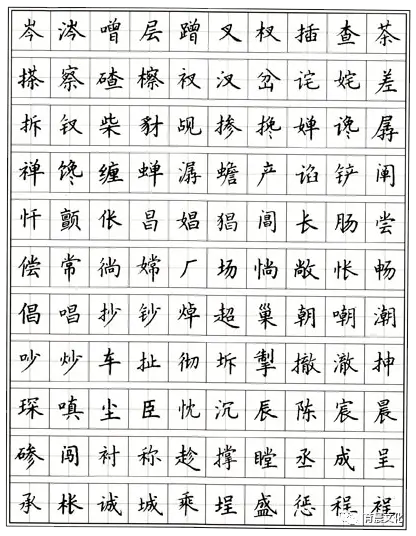 岑涔噌层蹭叉杈插查茶
搽察碴檫衩汊岔诧姹差
拆钗柴豺觇掺搀婵谗孱
禅馋缠蝉潺蟾产谄铲阐
忏颤伥昌娼猖阊长肠尝
偿常徜嫦厂场惝敞怅畅
倡唱抄钞焯超巢朝嘲潮
吵炒车扯彻坼掣撤澈抻
琛嗔尘臣忱沉辰陈宸晨
碜闯衬称趁撑瞠丞成呈
承枨诚城乘埕盛惩程裎
育晨文化